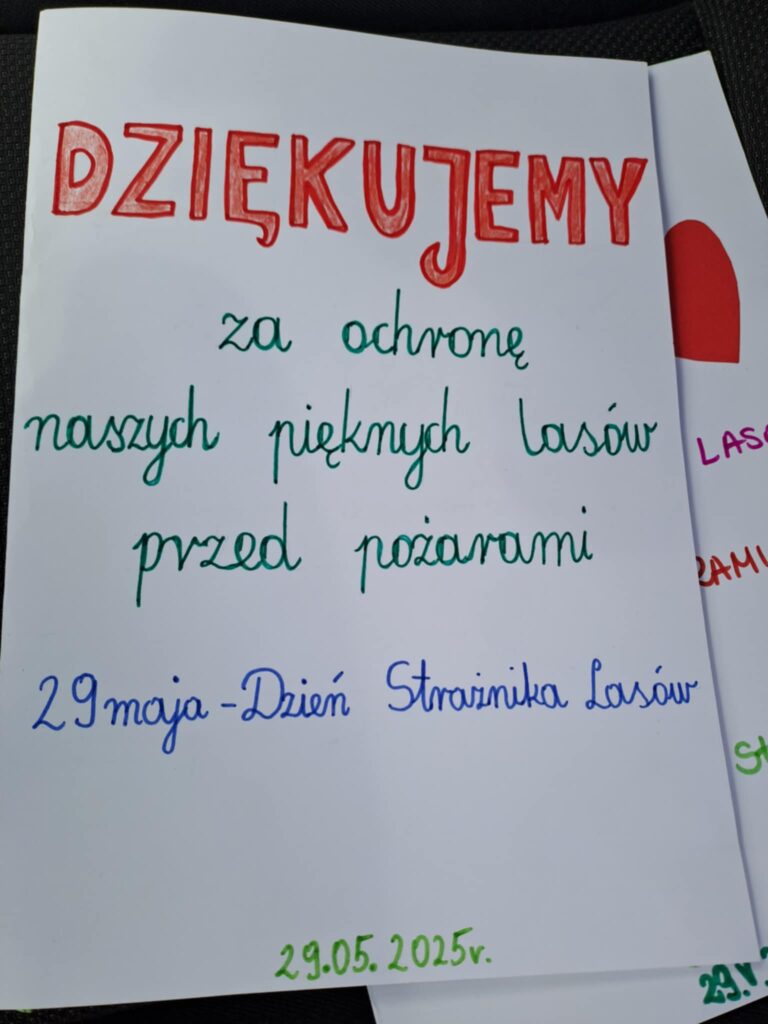 DZIĘKUJEMY
za ochronę
naszych pięknych lasów
przed pożarami
29 maja - Dzień Strażnika Lasów
29.05.2025r.